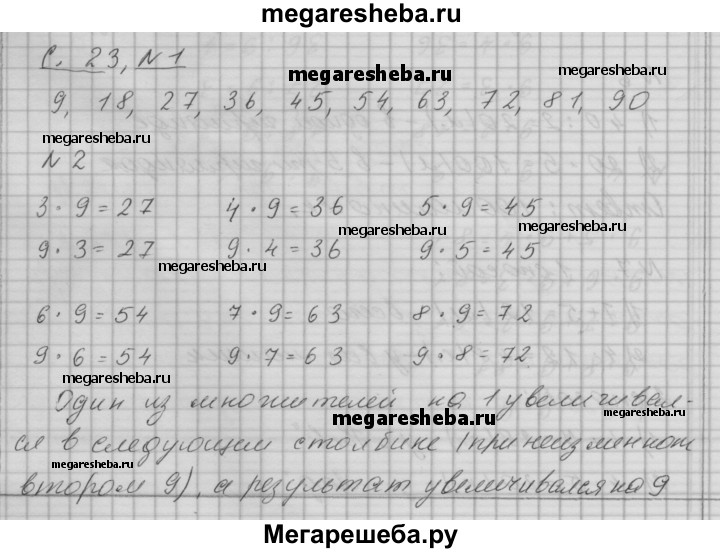 megaresheba.ru
С. 23, N 1
megaresheba.ru
megaresheba.ru
9, 18, 27, 36, 45, 54, 63, 72, 81, 90
megaresheba.ru
N 2
3 · 9 = 27 4 · 9 = 36 5 · 9 = 45
megaresheba.ru
9 · 3 = 27 9 · 4 = 36 9 · 5 = 45
megaresheba.ru
6 · 9 = 54 7 · 9 = 63 8 · 9 = 72
9 · 6 = 54 9 · 7 = 63 9 · 8 = 72
megaresheba.ru
Один из множителей на 1 увеличивал-
megaresheba.ru
ся в следующем столбике (при неизменном
megaresheba.ru
втором 9), а результат увеличивался на 9
Мегарешеба.ру